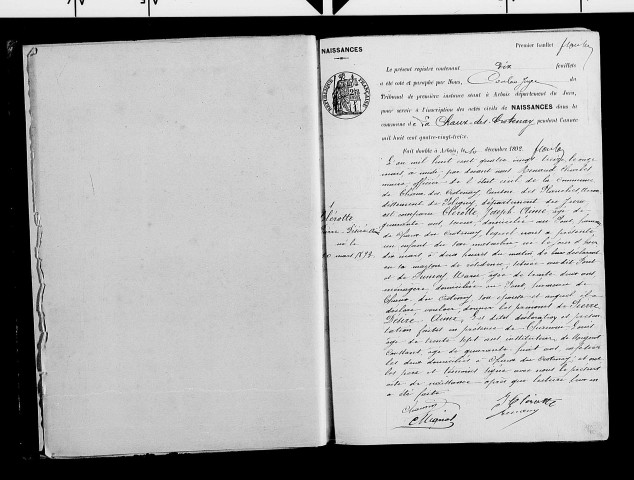 NAISSANCES
Premier feuillet
Le présent registre contenant dix feuillets
a été coté et paraphé par Nous, Juge du
Tribunal de première instance séant à Arbois département du Jura,
pour servir à l'inscription des actes civils de NAISSANCES dans la
commune de La Chaux-des-Crotenay, pendant l'année
mil huit cent quatre-vingt-treize.
Fait double à Arbois, le décembre 1892.
L'an mil huit cent quatre vingt treize le onze
mars à midi par devant nous Renaud
maire officier de l'état civil de la commune
de Chaux des Crotenay, canton des Planches, arron
dissement de Poligny, département du Jura
est comparu Clérotte Joseph Aimé âgé de
quarante ans, domicilié au Pont, commune
de Chaux des Crotenay, lequel nous a présenté
un enfant du sexe masculin né le jour d'hier
dix mars à deux heures du matin de lui déclarant
en la maison de résidence, audit Pont
et de Marie âgée de trente deux ans
ménagère, domiciliée au Pont, commune de
Chaux des Crotenay son épouse et auquel il a
déclaré vouloir donner les prénoms de Pierre
Désiré Aimé, Les dites déclaration et présen
tation faites en présence de Louis
âgé de trente sept ans instituteur, de Mignot
âgé de quarante ans
les deux domiciliés à Chaux des Crotenay, et ont
les père et témoins signé avec nous le présent
acte de naissance après que lecture leur en
a été faite
1
Clérotte
Pierre Désiré Aimé
né le
10 mars 1893
J Clérotte
Mignot